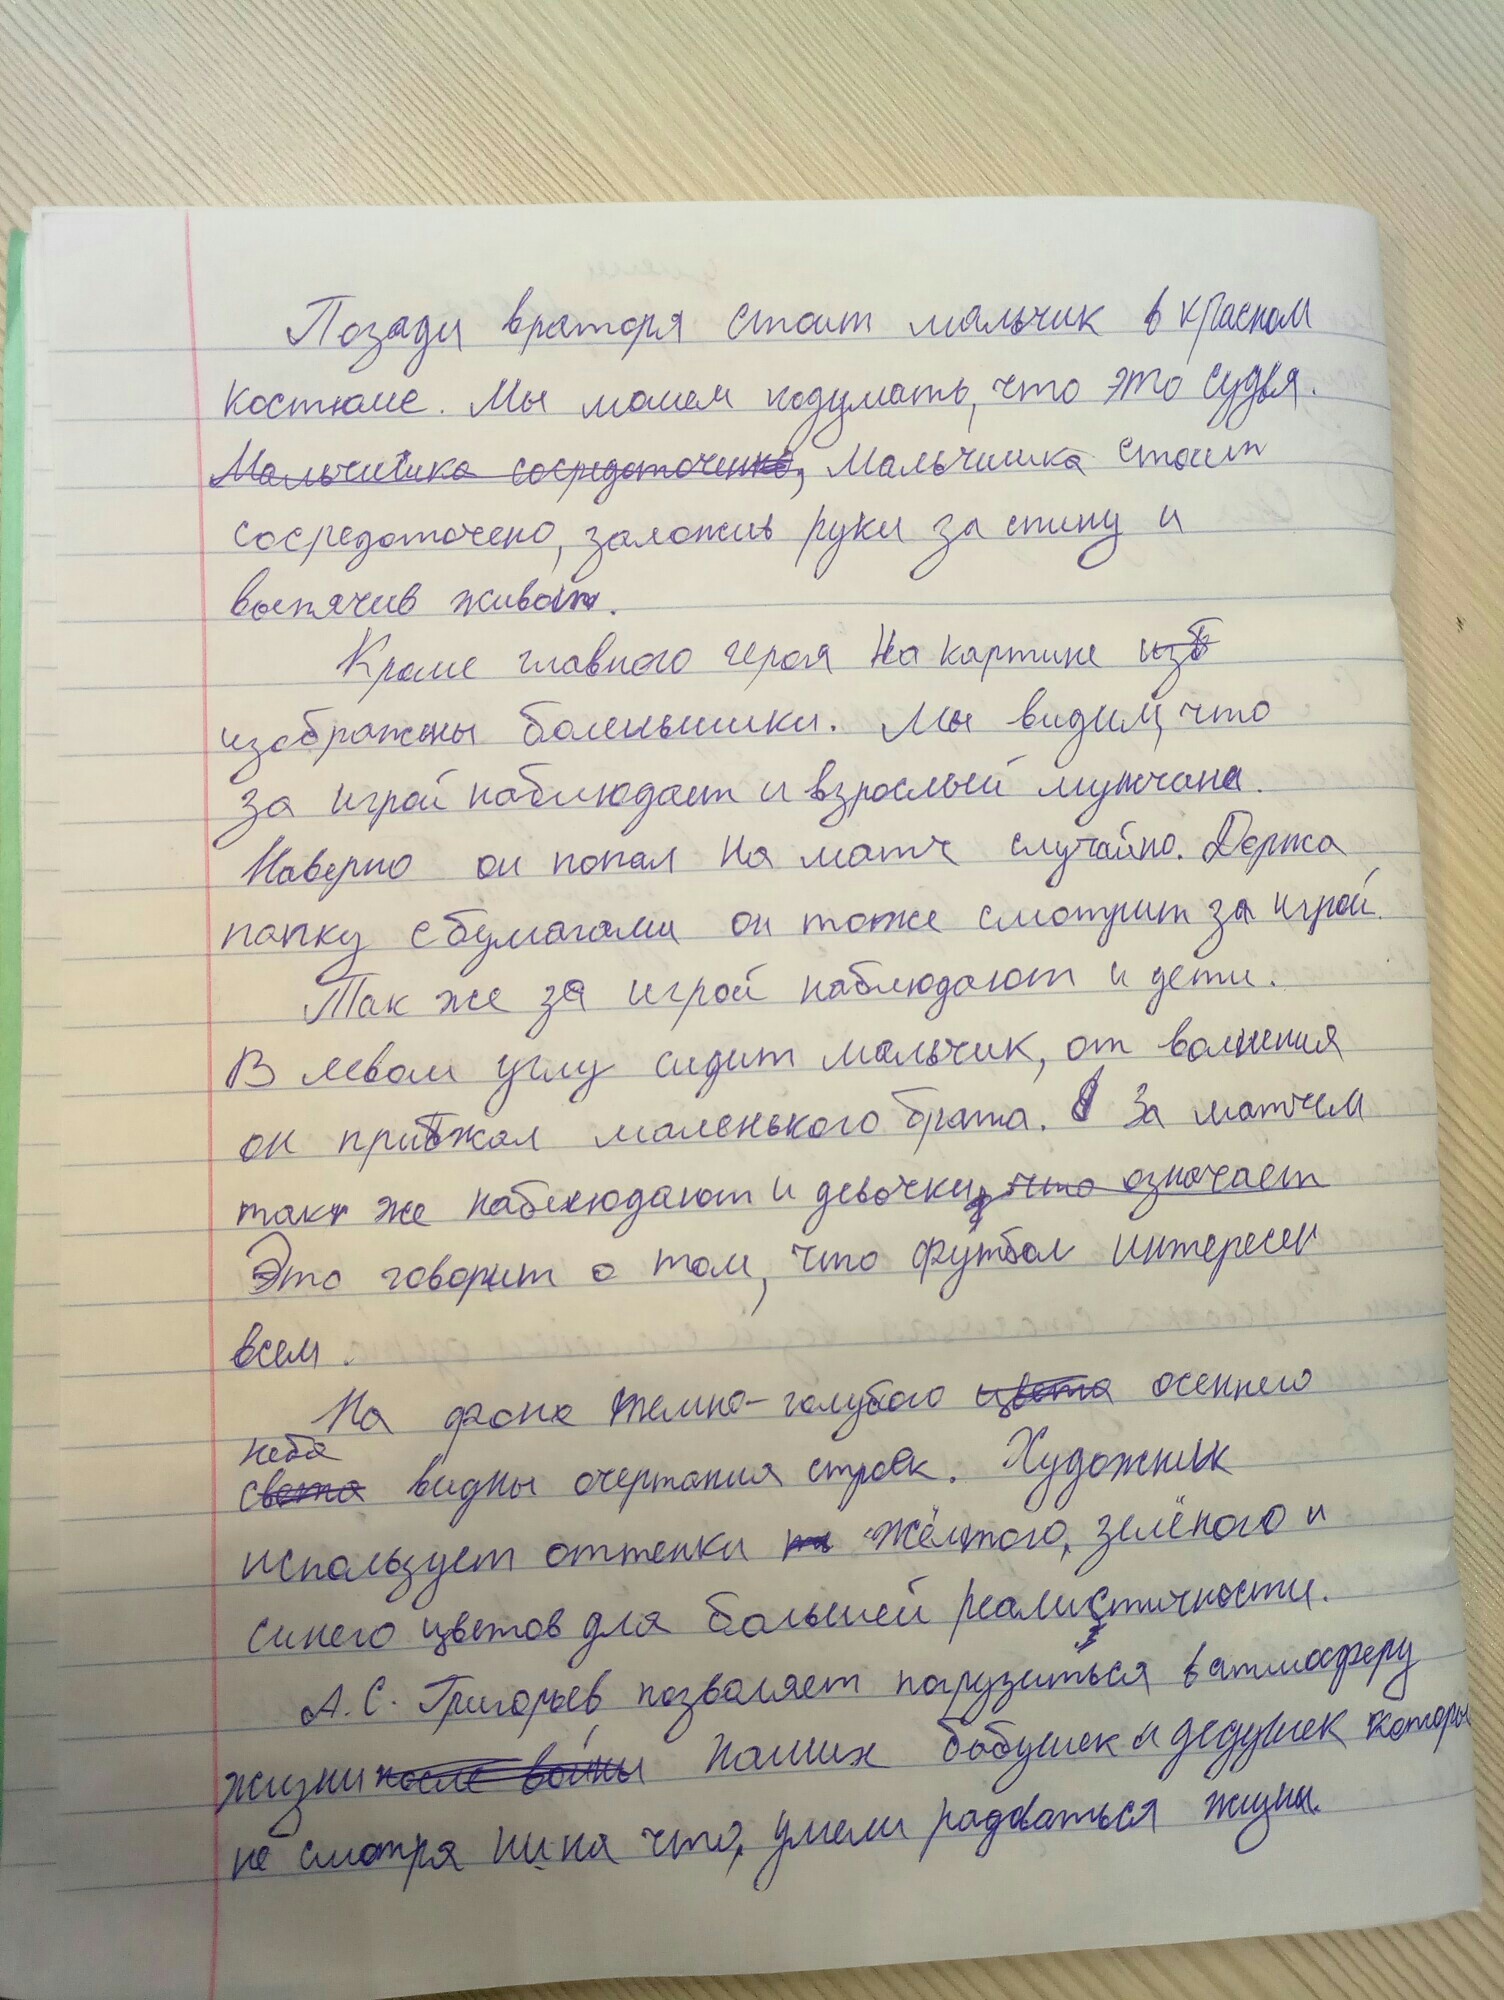 Позади вратаря стоит мальчик в красном
костюме. Мы можем подумать, что это судья.
Мальчишка сосредоточенно, Мальчишка стоит
сосредоточено, заложив руки за спину и
выпячив живот.
Кроме главного героя на картине изб
изображены боленьшики. Мы видим, что
за игрой наблюдает и взрослый мужчина.
Наверно он попал на матч случайно. Держа
папку с бумагами он тоже смотрит за игрой.
Так же за игрой наблюдают и дети.
В левом углу сидит мальчик, от волнения
он прижал маленького брата. За матчем
так же наблюдают и девочки, что означает
Это говорит о том, что футбол интересен
всем.
На фоне темно-голубого цвета осеннего
неба
света видны очертания строек. Художник
использует оттенки на жёлтого, зелёного и
синего цветов для большей реалистичности.
А.С. Григорьев позволяет погрузиться в атмосферу
жизни после войны наших бабушек и дедушек которы
не смотря ни на что, умели радоваться жизни.